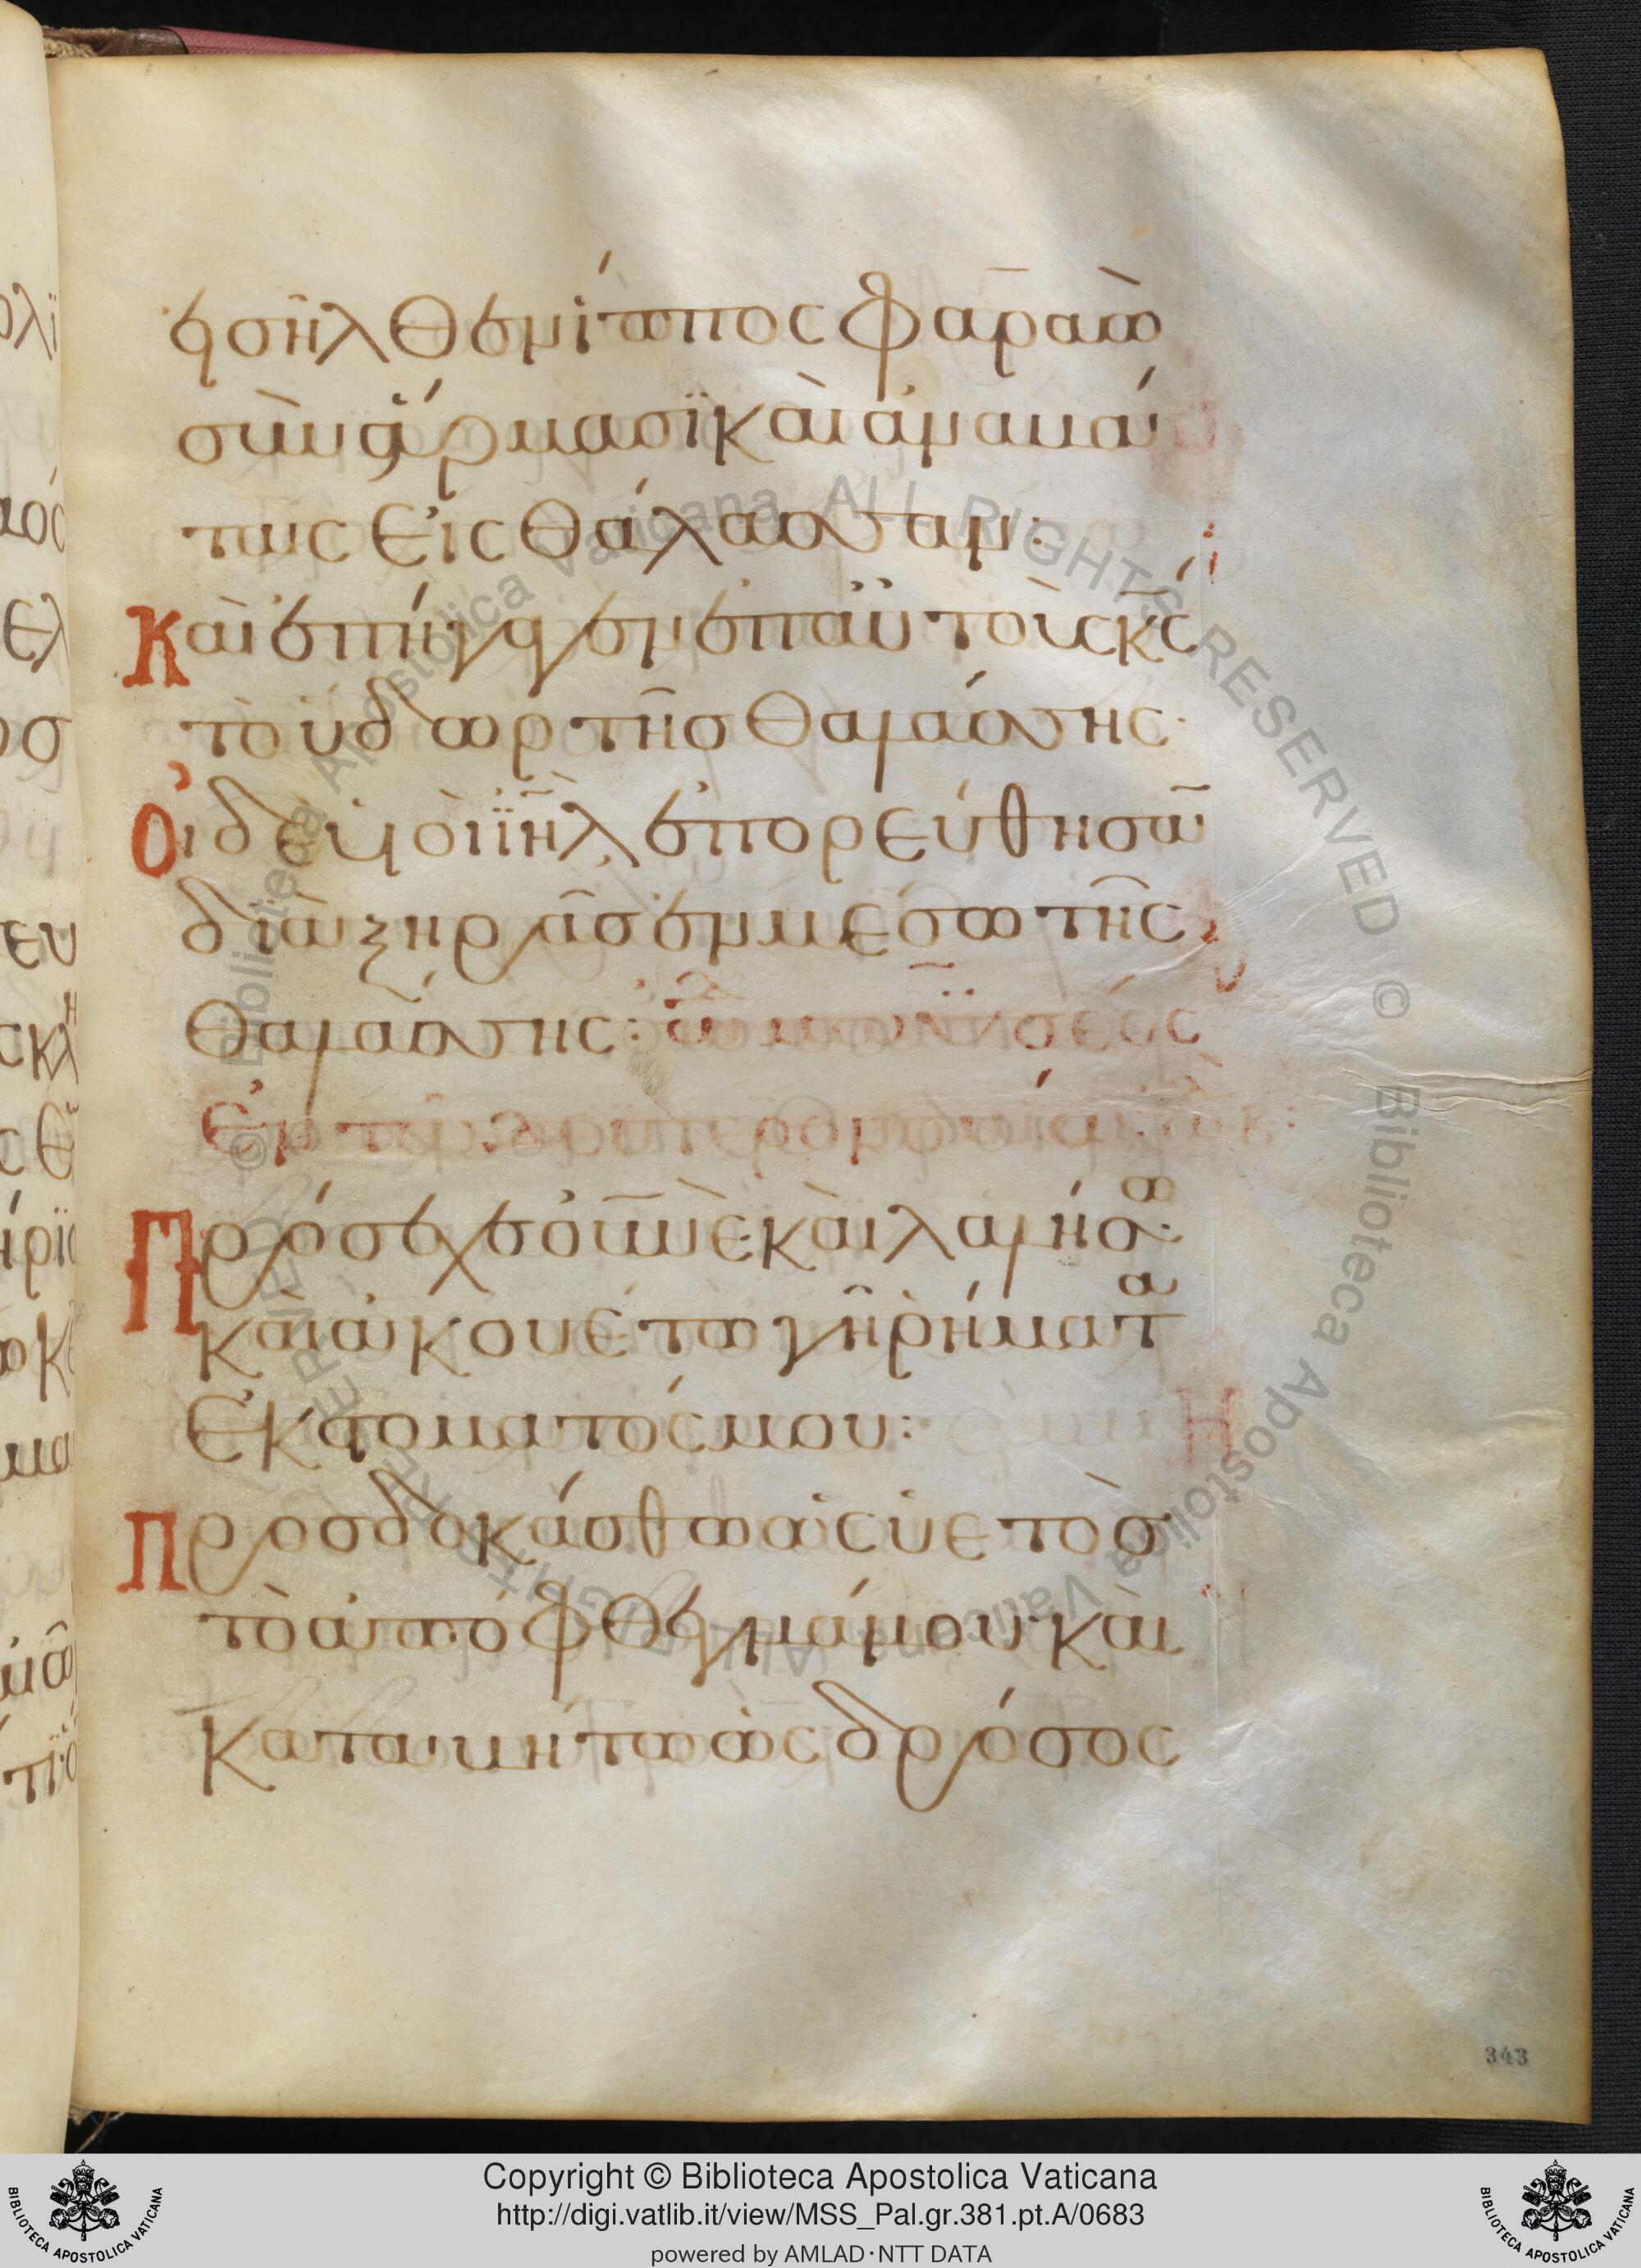 εἰσῆλθεν ἵππος φαραὼ
σὺν ἅρμασϊ καὶ ἀναβά
ταις εἰς θάλασσαν:
Καὶ ἐπήγαγεν ἐπ αὐτοὺς κ̅ς̅
τὸ ὕδωρ τῆς θαλάσσης·
Οἱ δὲ υἱοὶ ϊη̅λ̅ ἐπορεύθησα̅
διὰ ξηρᾶς ἐν μέσω τῆς
θαλάσσης: ὠ μωϋσέως
ἐν τῶ δευτερονομίω
Πρόσεχε οὐ̅νὲ· καὶ λαλήσω·
καὶ ἀκουέτω γῆ ῥήματα
ἐκ στόματός μου:
Προσδοκάσθω ὡς ὑετὸσ
τὸ ἀπόφθεγμά μου· καὶ
καταβήτω ὡς δρόσος
343
Copyright © Biblioteca Apostolica Vaticana
http://digi.vatlib.it/view/MSS_Pal.gr.381.pt.A/0683
powered by AMLAD·NTT DATA
BIBLIOTECA APOSTOLICA VATICANA
BIBLIOTECA APOSTOLICA VATICANA
© Biblioteca Apostolica Vaticana ALL RIGHTS RESERVED